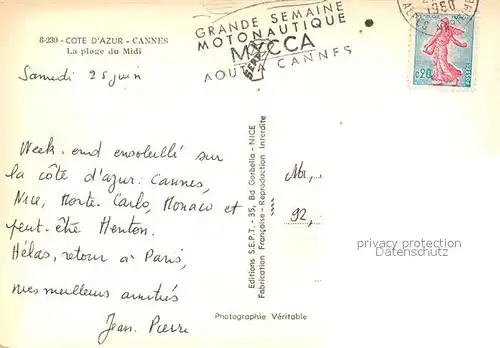 8-230 - COTE D'AZUR - CANNES
La plage du Midi
GRANDE SEMAINE
MOTONAUTIQUE
MYCCA
AOUT A CANNES
1960
0,20
POSTES
Samedi 25 juin
Week-end ensoleillé sur
la côte d'azur: Cannes,
Nice, Monte-Carlo, Monaco et
peut-être Menton.
Hélas, retour à Paris,
mes meilleurs amitiés
Jean-Pierre
Editions S.E.P.T. - 35, Bd Gorbella - NICE
Fabrication Française - Reproduction Interdite
92,
privacy protection
Datenschutz
Photographie Véritable